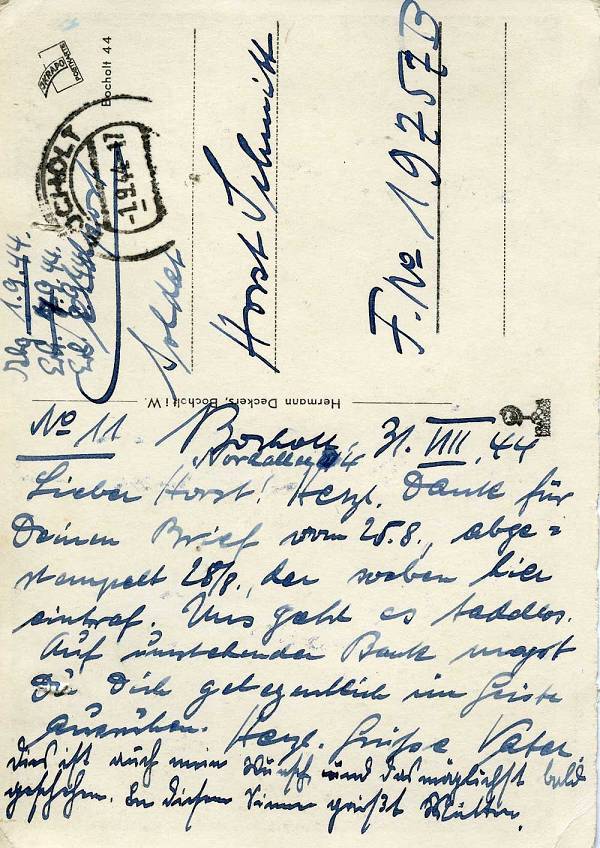 SKRAPO
POSTKARTE
Bocholt 44
BOCHOLT
-1.9.44.-17
1.9.44.
9.44.
Soldat
Horst Schmitt
F. No 19757B
Hermann Deckers, Bocholt i W.
No 11 Bocholt, 31. VIII. 44
Lieber Horst! Herzl. Dank für
Deinen Brief vom 25.8., abge=
stempelt 28/8., der soeben hier
eintraf. Uns geht es tadellos.
Auf umstehender Bank magst
Du Dich gelegentlich im Geiste
ausruhen. Herzl. Grüße Vater
Dies ist auch mein Wunsch und das möglichst bald
geschehen. In diesem Sinne grüßt Mutter.